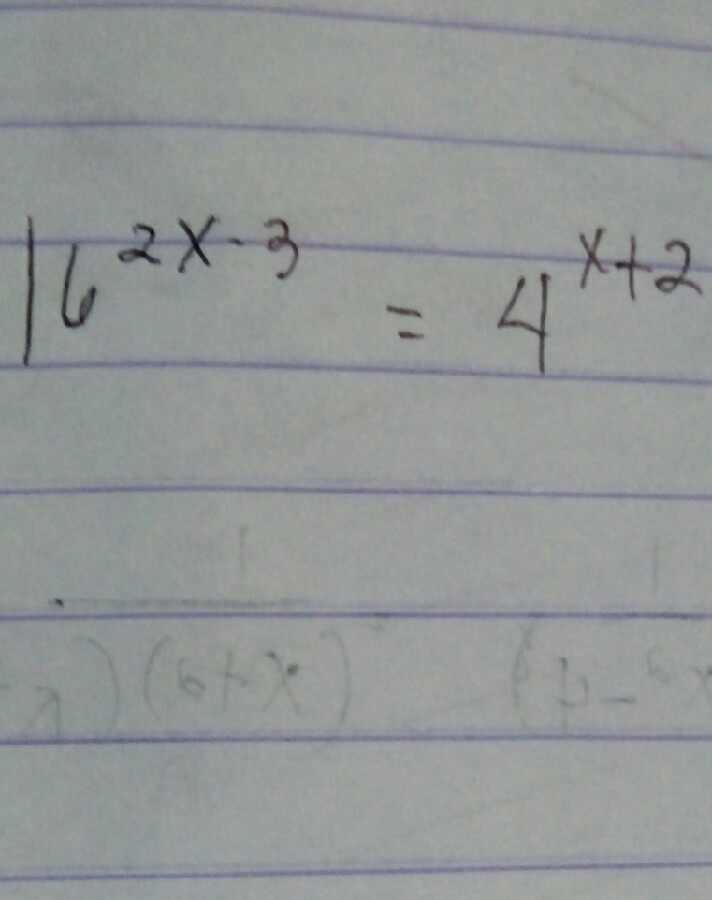 16^{2x-3} = 4^{x+2}